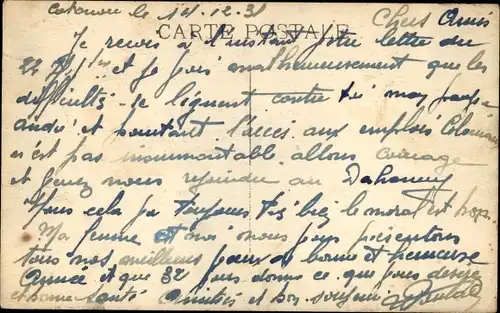 Cotonou le 14-12-31
Chers Amis
CARTE POSTALE
Je reçois à l'instant votre lettre du
22 et je vois malheureusement que les
difficultés se liguent contre toi mon
andré et pourtant l'accès aux emplois
n'est pas insurmontable allons courage
et venez nous rejoindre au Dahomey
Nous cela va toujours très bien le moral est
Ma femme et moi nous vous présentons
tous nos meilleurs vœux de bonne et heureuse
Année et que 32 vous donne ce que vous désirez
et bonne santé Amitiés et bon souvenir